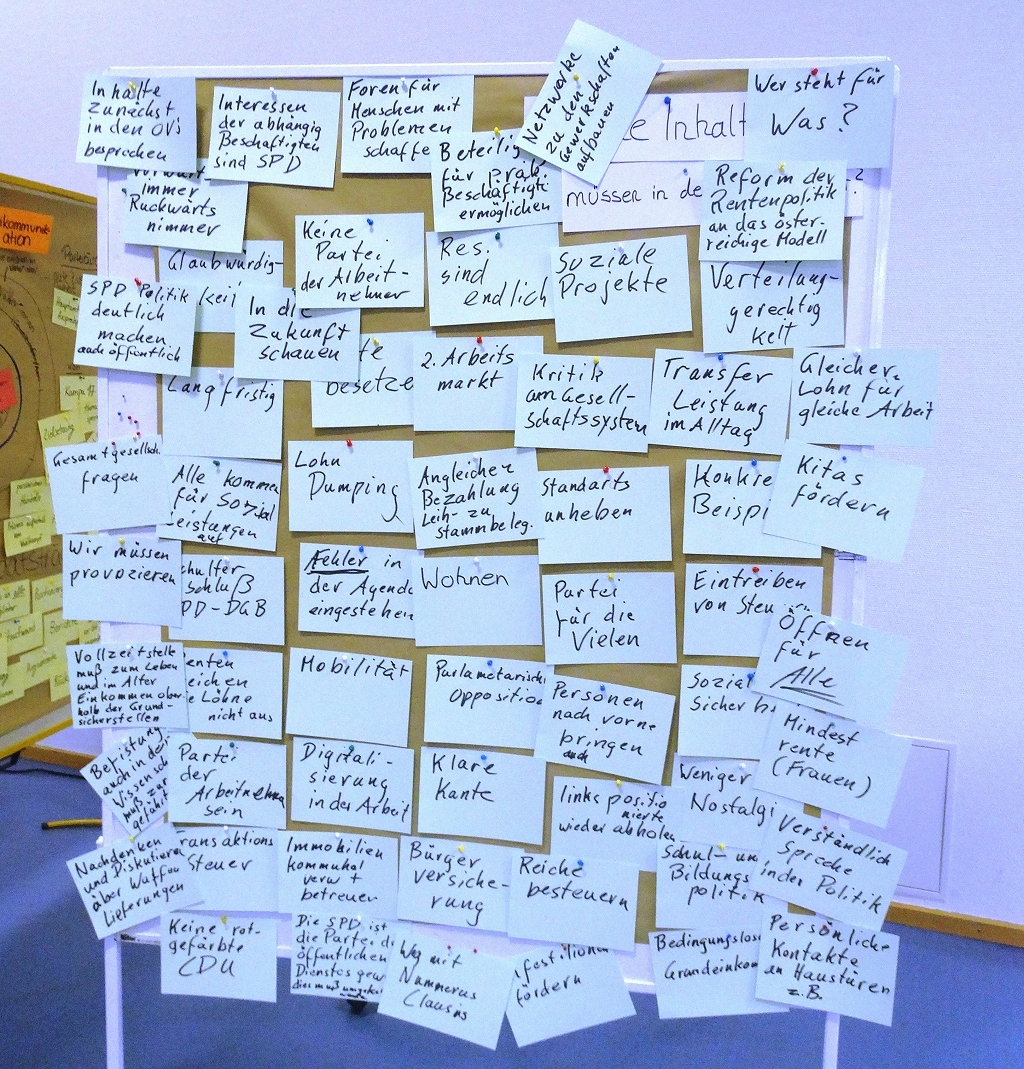 Inhalte
zunächst
in den OV's
besprechen
Interessen
der abhängig
Beschäftigten
sind SPD
Foren für
Menschen mit
Problemen
schaffe
Netzwerke
zu den
Gewerkschaften
aufbauen
e Inhalt
müssen in de
Wer steht für
Was?
Immer
Ruckwärts
nimmer
Beteilig
für präk
Beschäftigte
ermöglichen
Reform der
Rentenpolitik
an das öster-
reichige Modell
Glaubwürdig-
keit
Keine
Partei
der Arbeit-
nehmer
Res.
sind
endlich
Soziale
Projekte
Verteilung-
gerechtig
keit
SPD Politik
deutlich
machen
auch öffentlich
In die
Zukunft
schauen
te
besetze
2. Arbeits
markt
Kritik
am Gesell-
schaftssystem
Transfer
Leistung
im Alltag
Gleicher
Lohn für
gleiche Arbeit
Langfristig
Gesamtgesellsch.
fragen
Alle komme
für Sozial
Leistungen
auf
Lohn
Dumping
Angleicher
Bezahlung
Leih- zu
Stammbeleg.
Standarts
anheben
Konkre
Beispi
Kitas
fördern
Wir müssen
provozieren
chulter
schluß
PD-DGB
Fehler in
der Agenda
eingestehen
Wohnen
Partei
für die
Vielen
Eintreiben
von Steu
Öffnen
für
Alle
Vollzeitstelle
muß zum Leben
und im Alter
Einkommen ober
halb der Grund-
sicherstellen
enten
eichen
e Löhne
nicht aus
Mobilität
Parlamentarische
Oppositio
Personen
nach vorne
bringen
auch
Sozial
Sicher
Mindest
rente
(Frauen)
Befristung
auch in der
Wissensch
muß zur
geführt
Partei
der
Arbeitnehme
sein
Digitali-
sierung
in der Arbeit
Klare
Kante
links positio
nierte
wieder abholen
Weniger
Nostalgi
Verständlich
Sprache
in der Politik
Nachdenken
und Diskutieren
über Waffen
Lieferungen
ransaktions
Steuer
Immobilien
kommunal
verw t
betreuer
Bürger
versiche-
rung
Reiche
besteuern
Schul- un
Bildungs
politik
Keine rot-
gefärbte
CDU
Die SPD ist
die Partei d
öffentlichen
Dienstes gew
dies muß umgeke
Weg mit
Nummerus
Clausus
fördern
Bedingungslose
Grundeinkom
Persönliche
Kontakte
an Haustüren
z.B.